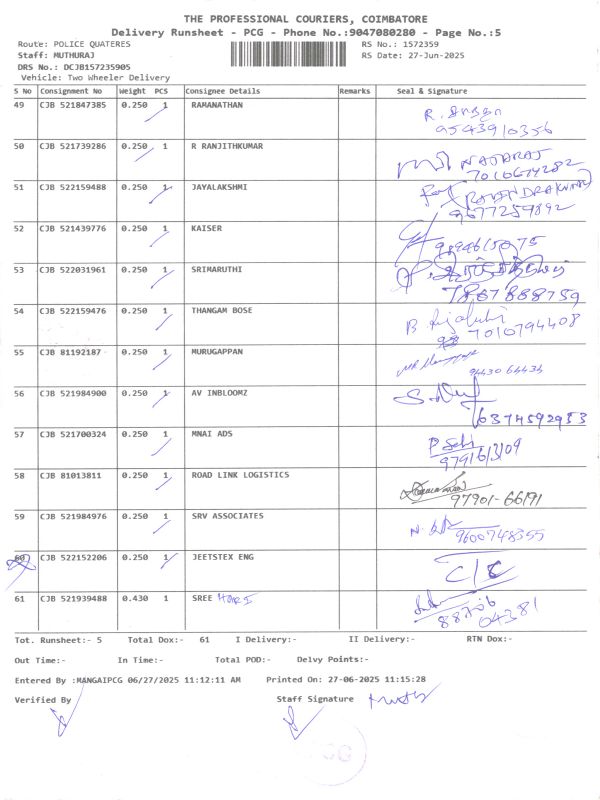 THE PROFESSIONAL COURIERS, COIMBATORE
Delivery Runsheet - PCG - Phone No.:9047080280 - Page No.:5
Route: POLICE QUATERES RS No.: 1572359
Staff: MUTHURAJ RS Date: 27-Jun-2025
DRS No.: DCJB157235905
Vehicle: Two Wheeler Delivery
S No Consignment No Weight PCS Consignee Details Remarks Seal & Signature
49 CJB 521847385 0.250 1 RAMANATHAN
9543910356
50 CJB 521739286 0.250 1 R RANJITHKUMAR NATARAJ
7010674282
51 CJB 522159488 0.250 1 JAYALAKSHMI
9677259892
52 CJB 521439776 0.250 1 KAISER
9894615075
53 CJB 522031961 0.250 1 SRIMARUTHI
7867888759
54 CJB 522159476 0.250 1 THANGAM BOSE
7010794408
55 CJB 81192187 0.250 1 MURUGAPPAN
94430 64434
56 CJB 521984900 0.250 1 AV INBLOOMZ
6374592933
57 CJB 521700324 0.250 1 MNAI ADS
9791613109
58 CJB 81013811 0.250 1 ROAD LINK LOGISTICS
97901-66191
59 CJB 521984976 0.250 1 SRV ASSOCIATES
9600748355
60 CJB 522152206 0.250 1 JEETSTEX ENG C/C
61 CJB 521939488 0.430 1 SREE HARI
88706
04381
Tot. Runsheet:- 5 Total Dox:- 61 I Delivery:- II Delivery:- RTN Dox:-
Out Time:- In Time:- Total POD:- Delvy Points:-
Entered By :MANGAIPCG 06/27/2025 11:12:11 AM Printed On: 27-06-2025 11:15:28
Verified By Staff Signature